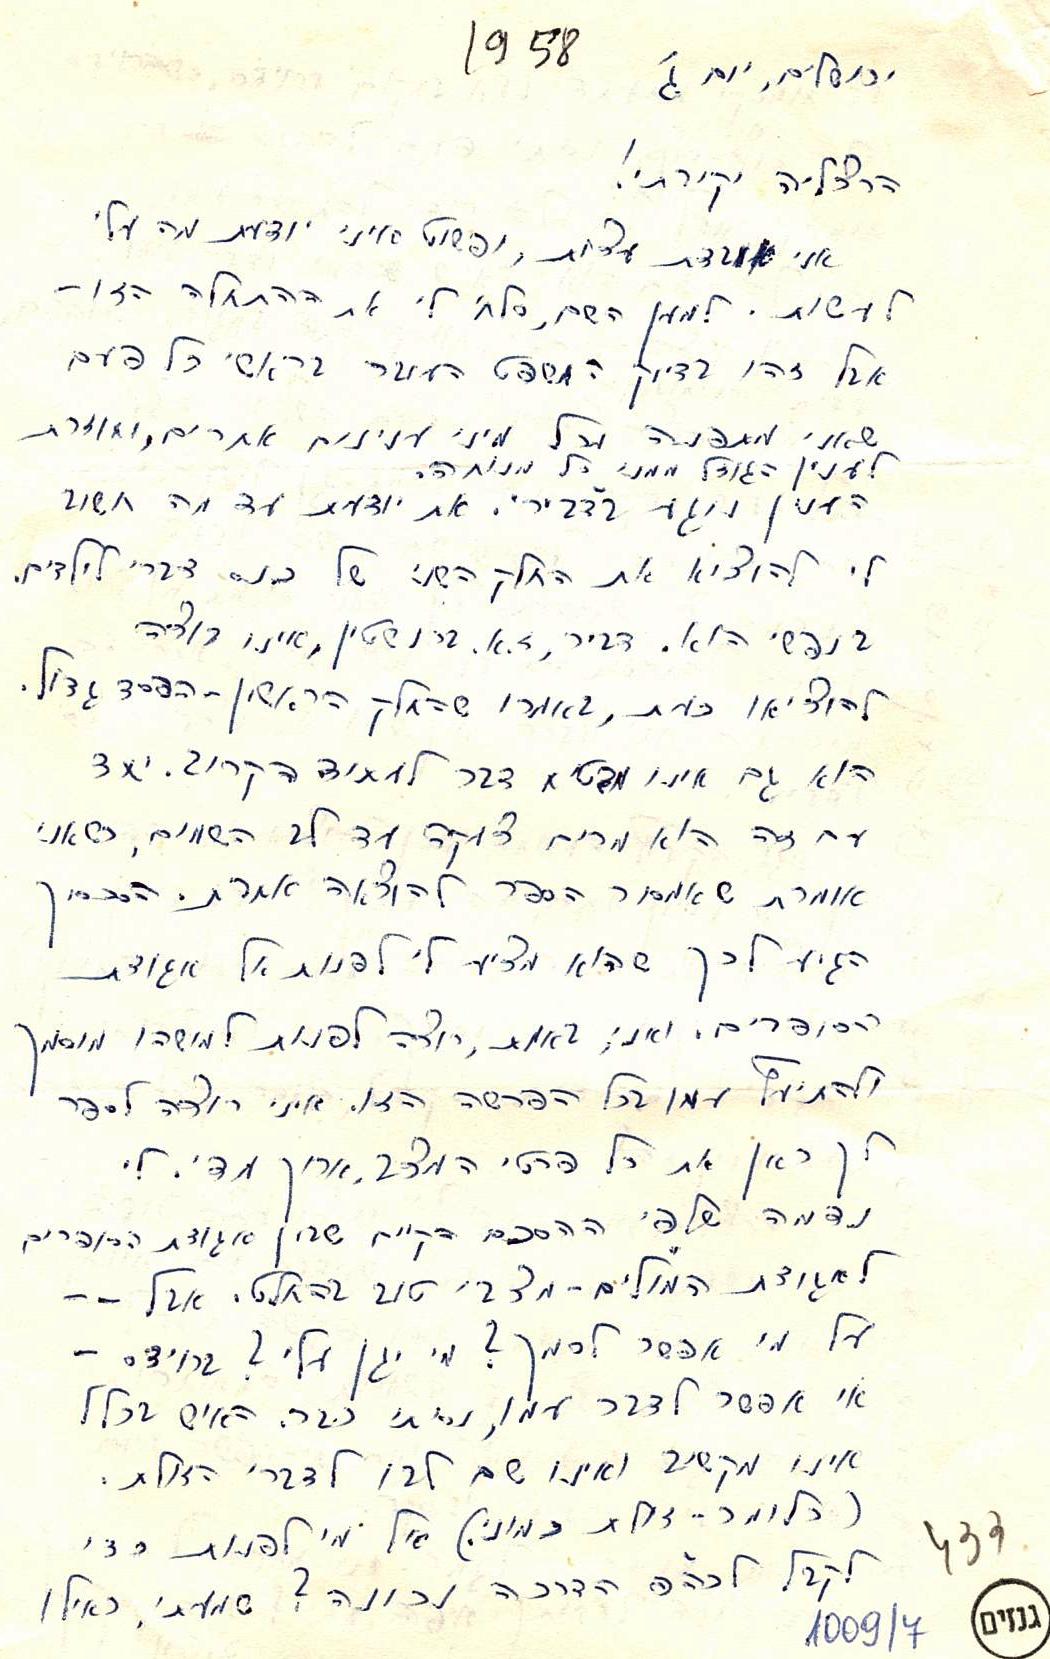 1958
ירושלים, יום ג'
הרצליה יקירתי!
אני אובדת עצות, ופשוט איני יודעת מה עלי
לעשות. למען השם, סלחי לי את ההתחלה הזו –
אבל זהו בדיוק המשפט העובר בראשי כל פעם
שאני מתפנה מכל מיני ענינים אחרים, וחוזרת
לענין הגוזל ממני כל מנוחה.
הענין נוגע ב"דביר". את יודעת עד מה חשוב
לי להוציא את החלק השני של כנס דברי לילדים.
בנפשי הוא. דביר, ז.א. ברושטין, אינו רוצה
להוציאו כעת, באמרו שהחלק הראשון – הפסד גדול.
הוא גם אינו מבטיח דבר לעתיד הקרוב. יחד
עם זה הוא מרים צעקה עד לב השמים, כשאני
אומרת שאמסור הספר להוצאה אחרת. הסכסוך
הגיע לכך שהוא מציע לי לפנות אל אגודת
הסופרים. ואני, באמת, רוצה לפנות למישהו מוסמך
ולהתיעץ עמו בכל הפרשה הזו. איני רוצה לספר
לך כאן את כל פרטי המצב, ארוך מדי. לי
נדמה שלפי ההסכם הקיים שבין אגודת הסופרים
לאגודת המו"לים – מצבי טוב בהחלט. אבל – –
על מי אפשר לסמוך? מי יגן עלי? ברוידס –
אי אפשר לדבר עמו, נסיתי כבר. האיש בכלל
אינו מקשיב ואינו שם לבו לדברי הזולת.
(כלומר – זולת כמוני.) אל מי לפנות כדי
לקבל לכה"פ הדרכה נכונה? שמעתי, כאילו
433
1009/7
גנזים